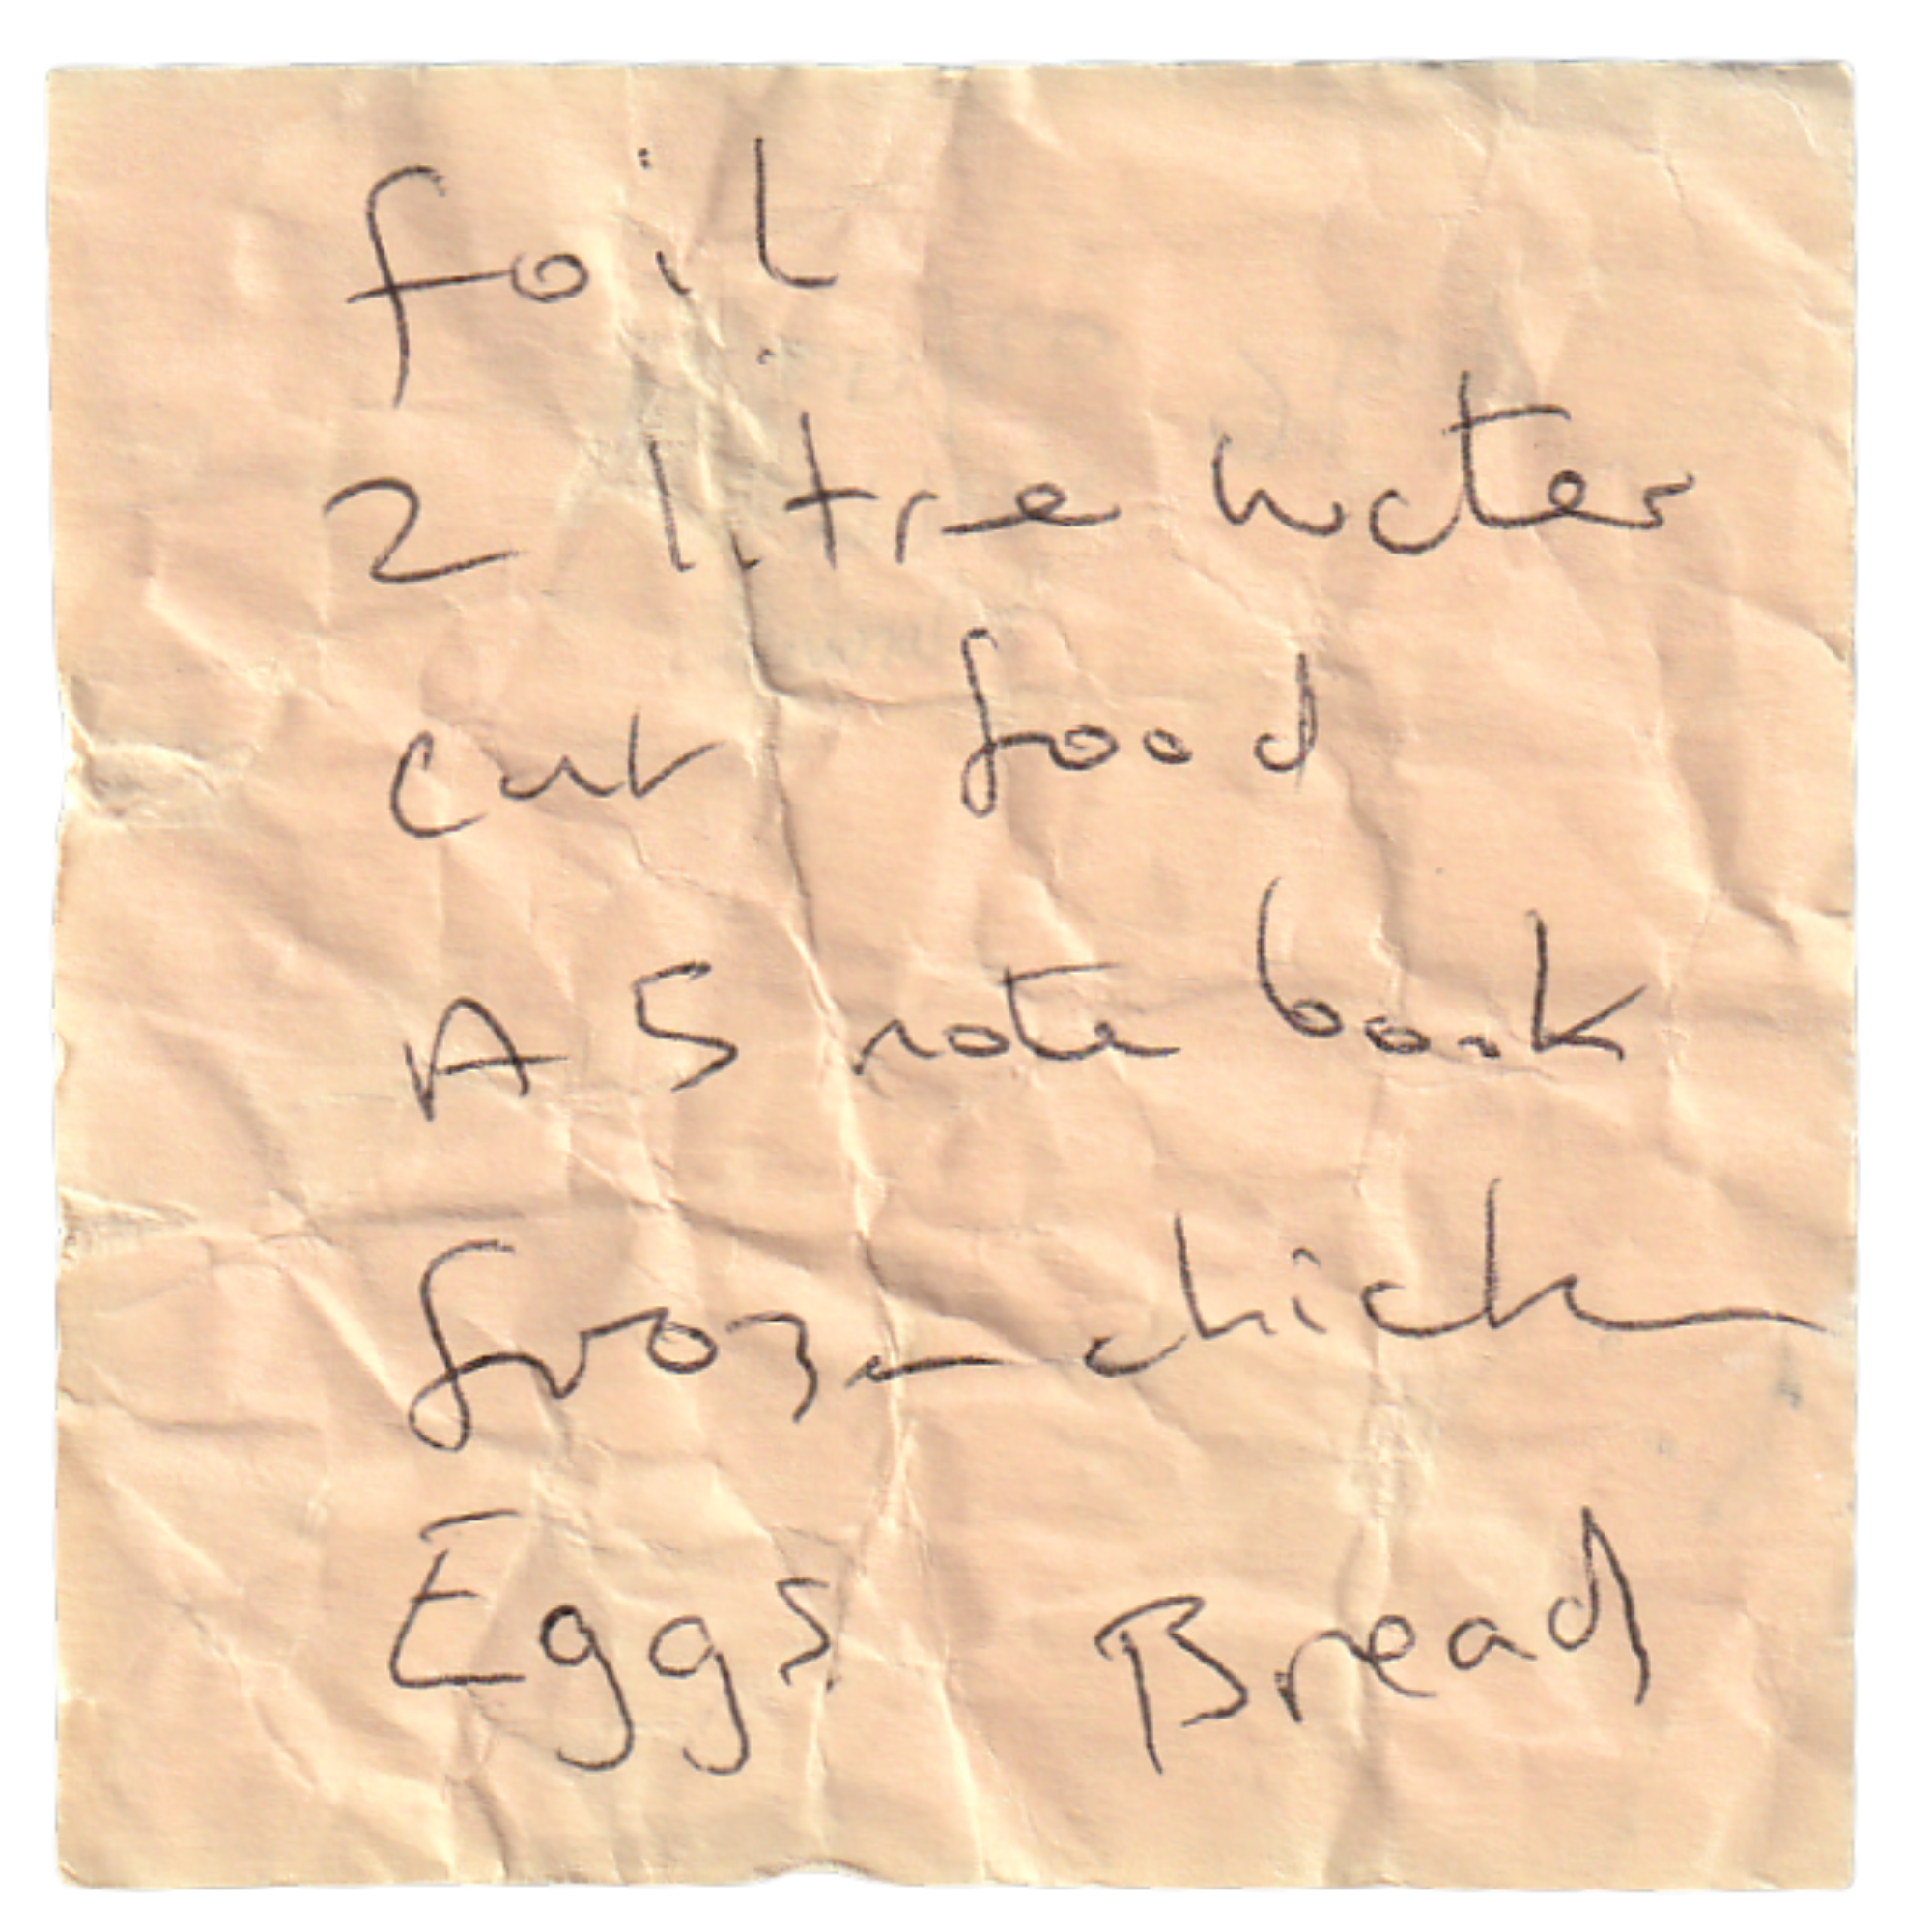 foil
2 litre water
cat food
A5 note book
frozen chicken
Eggs Bread